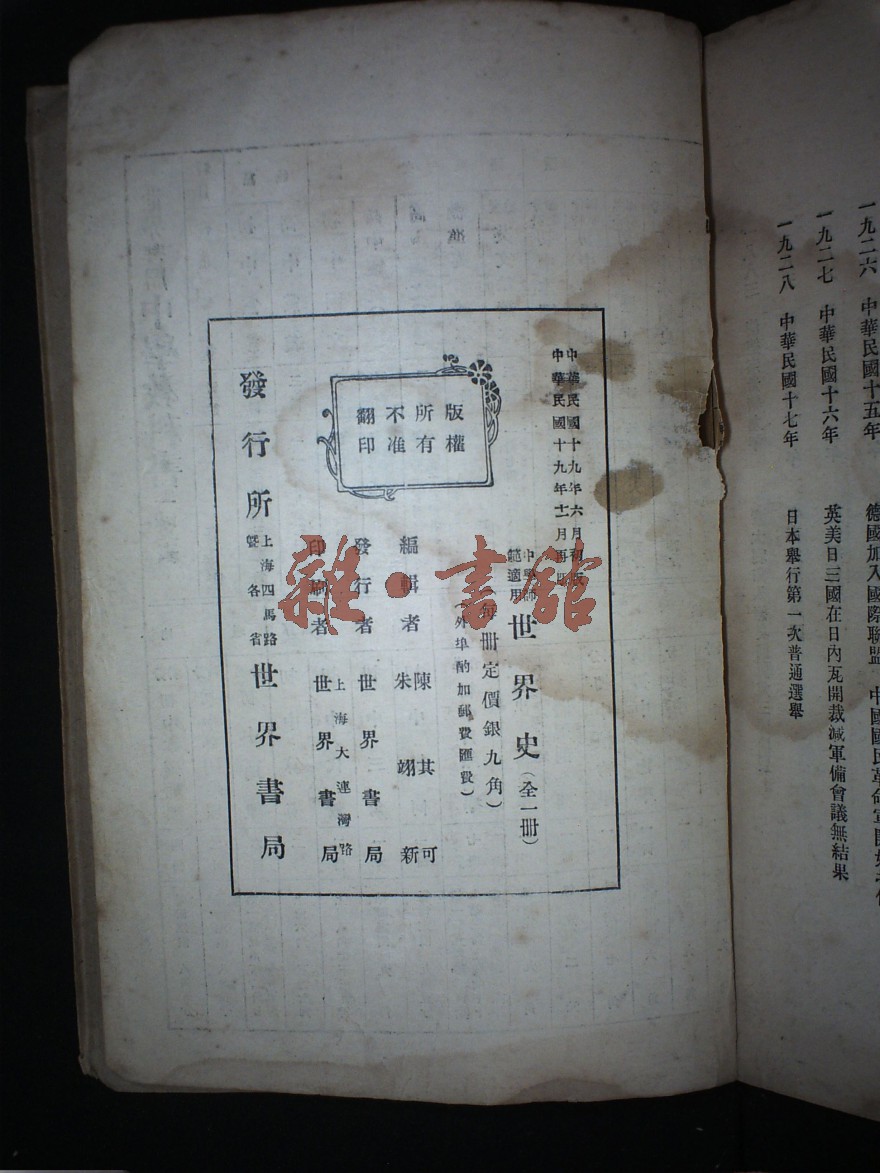 一九二六 中華民國十五年 德國加入國際聯盟 中國國民革命軍開始北伐
一九二七 中華民國十六年 英美日三國在日內瓦開裁減軍備會議無結果
一九二八 中華民國十七年 日本舉行第一次普通選舉
中華民國十九年六月初版
中華民國十九年十一月再版
中學師
範適用
世界史(全一冊)
每冊定價銀九角)
(外埠酌加郵費匯費)
版權
所有
不准
翻印
編輯者
陳其可
朱翊新
發行者 世界書局
印刷者
上海大連灣路
世界書局
發行所
上海四馬路
暨各省
世界書局
雜·書館